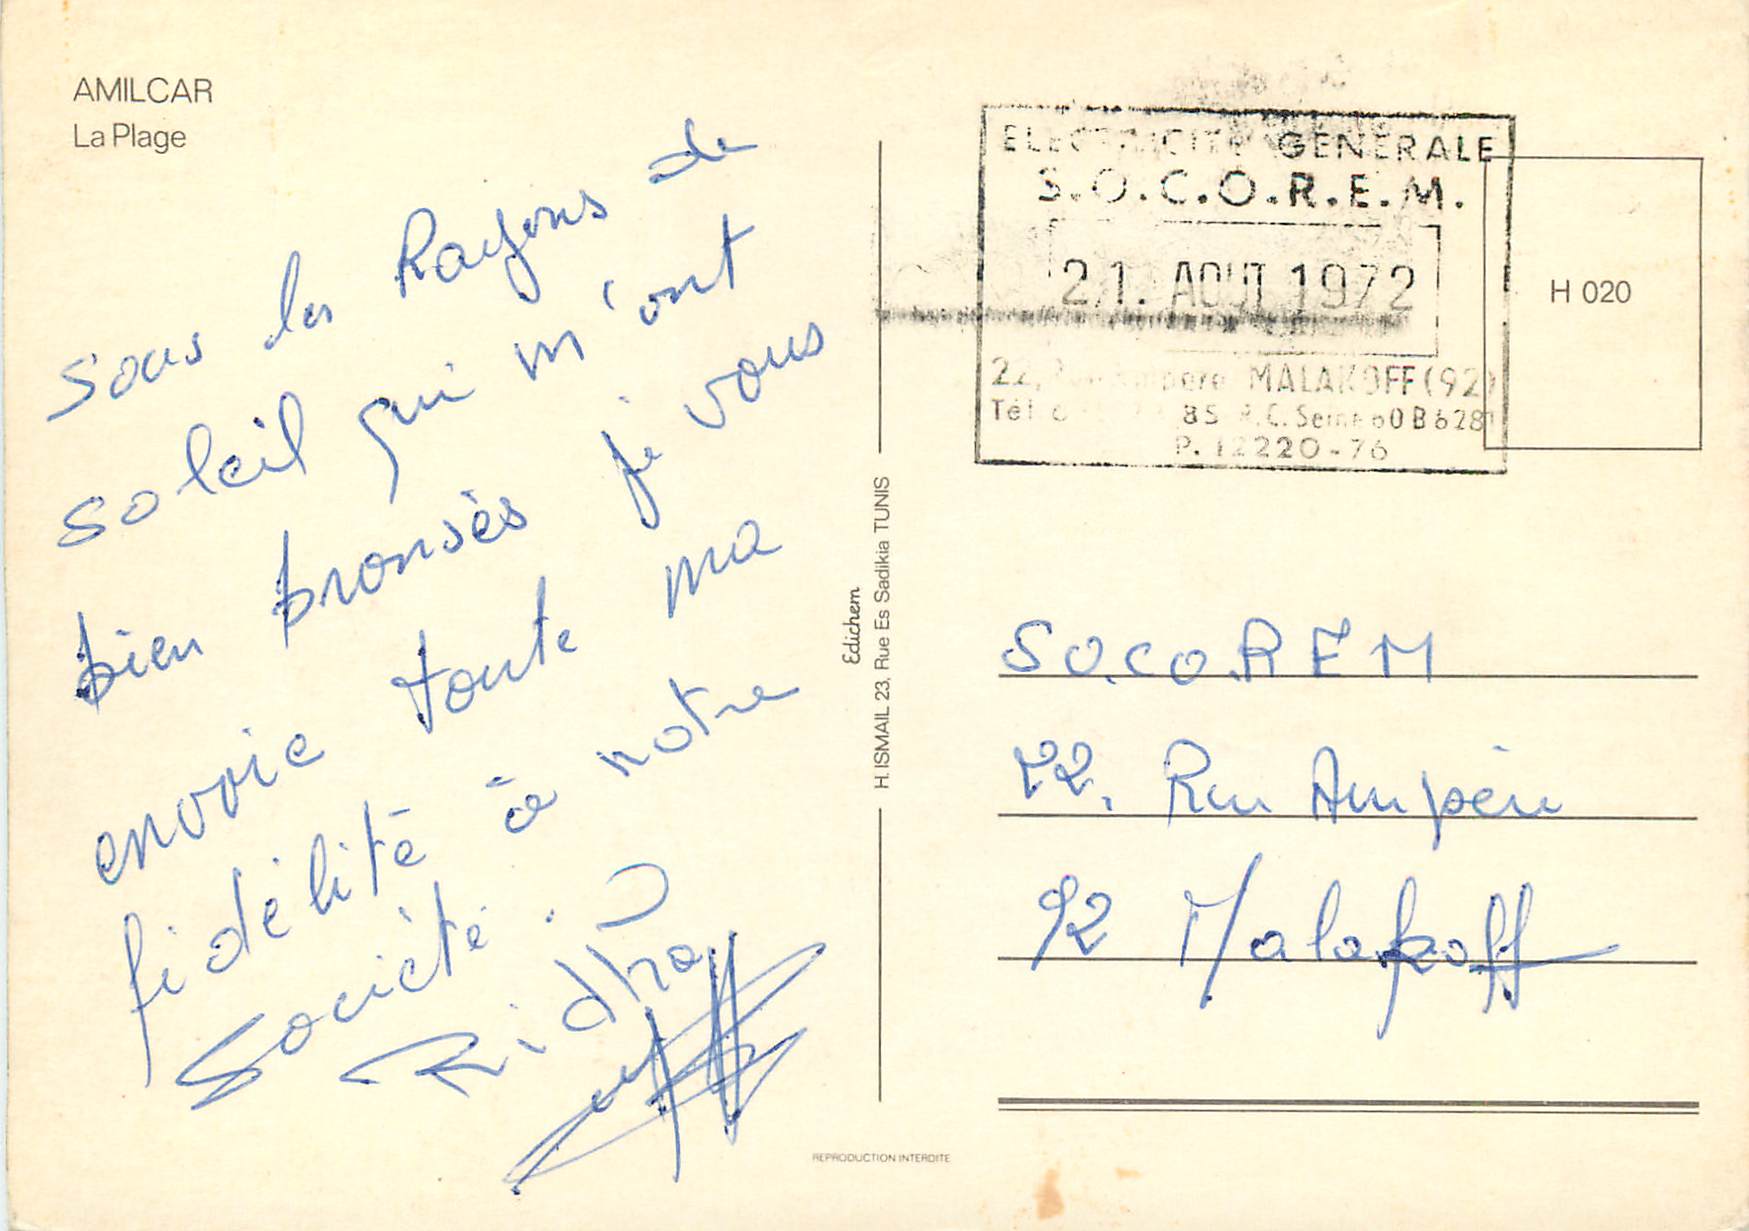 AMILCAR
La Plage
Sous les Rayons de
soleil qui m'ont
bien bronsès je vous
envoie toute ma
fidélité à notre
Société.
Ridha
Edichem
H. ISMAIL 23, Rue Es Sadikia TUNIS
REPRODUCTION INTERDITE
ELECTRICITE GENERALE
S.O.C.O.R.E.M.
21. AOUT 1972
22, Rue Ampère MALAKOFF (92)
Tél 85 R.C. Seine 60 B 6281
P. 12220-76
H 020
SO.CO.REM
22. Rue Ampère
92 Malakoff